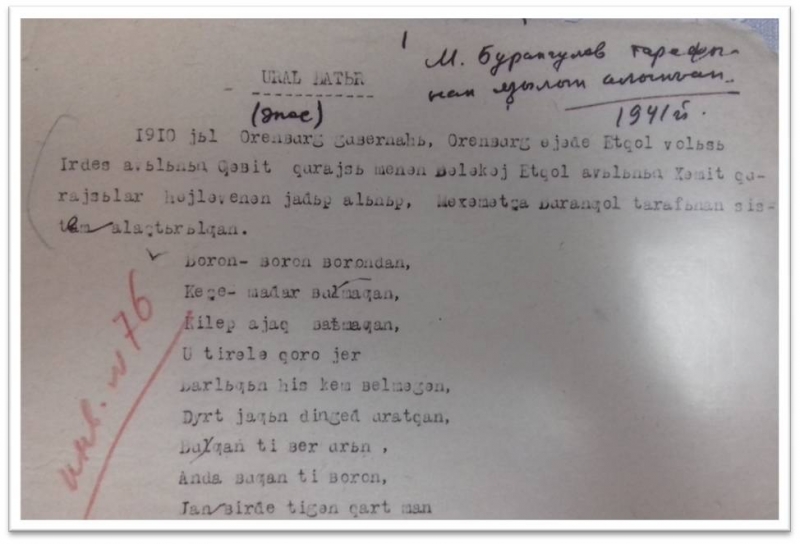 М. Бурангулов тарафы-
нан язылып алынған.
1941 й.
URAL BATЬR
(эпос)
1910 jьl Orenburg gubernahь, Orenburg øjəđe Etqol volьsь
Irdes avьlьnьn Qəbit qurajsь menən Bələkəj Etqol avьlьnьn Xəmit qu-
rajsьlar højləvenən jađьp alьnьp, Məxəmətşa Buranqol tarafьnan sis-
alaştьrьlqan.
Boron- boron borondan,
Keşe- mađar bulmaqan,
Kilep ajaq baθmaqan,
U tirələ qoro jer
Barlьqьn his kem belməgən,
Dyrt jaqьn dingeđ uratqan,
Bulqan ti ber urьn ,
Anda buqan ti boron,
Jan-birđe tigən qart man
инв. № 76